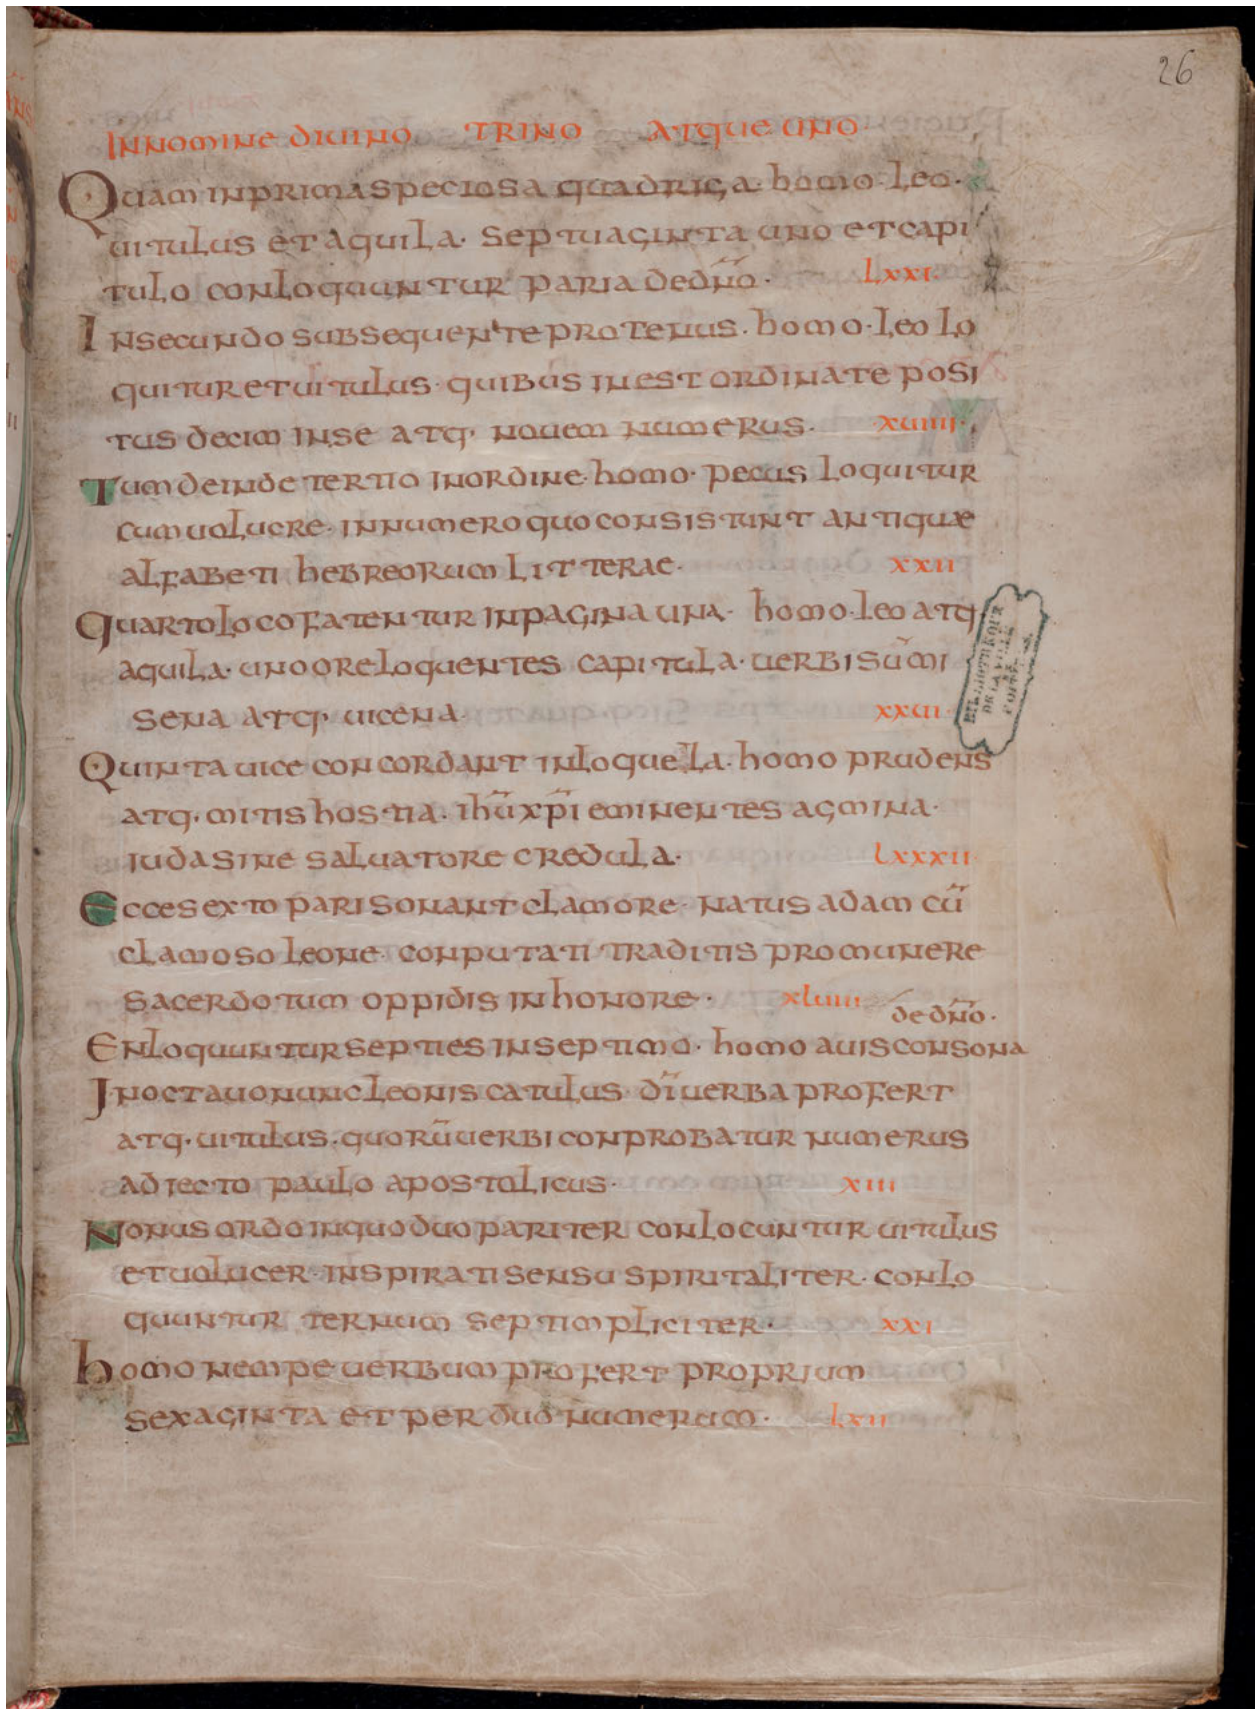 26
INNOMINE DIUINO TRINO ATQUE UNO
QUAM INPRIMA SPECIOSA QUADRIGA· homo·leo·
uitulus et aquila· septuaginta uno et capi
tulo conloquuntur paria dedn̄o· lxxi·
Insecundo subsequente protenus· homo·leo lo
quitur et uitulus· quibus inest ordinate posi
tus decim inse atq· nouem numerus· xuiiii·
Tum deinde tertio inordine·homo· pecus loquitur
cum uolucre· innumero quo consistunt antiquæ
alfabeti hebreorum litterae· xxii
quarto loco fatentur inpagina una· homo·leo atq·
aquila· uno ore loquentes capitula· uerbi sūmi
sena atq· uicena· xxui·
Quinta uice concordant inloquella· homo prudens
atq· mitis hostia· ihū xp̄i eminentes agmina·
iuda sine saluatore credula· lxxxii
Ecce sexto pari sonant clamore· natus adam cū
clamoso leone· conputati traditis promunere
sacerdotum oppidis inhonore· xluiii
dedn̄o·
Enloquuntur septies inseptimo· homo auis consona
Inoctauo nunc leonis catulus· dī uerba profert
atq· uitulus· quorū uerbi conprobatur numerus
adiecto paulo apostolicus· xiii
Nonus ordo inquo duo pariter conlocuntur uitulus
et uolucer· inspirati sensu spiritaliter· conlo
quuntur ternum septimpliciter· xxi
homo nempe uerbum profert proprium
sexaginta et per duo numerum· lxii